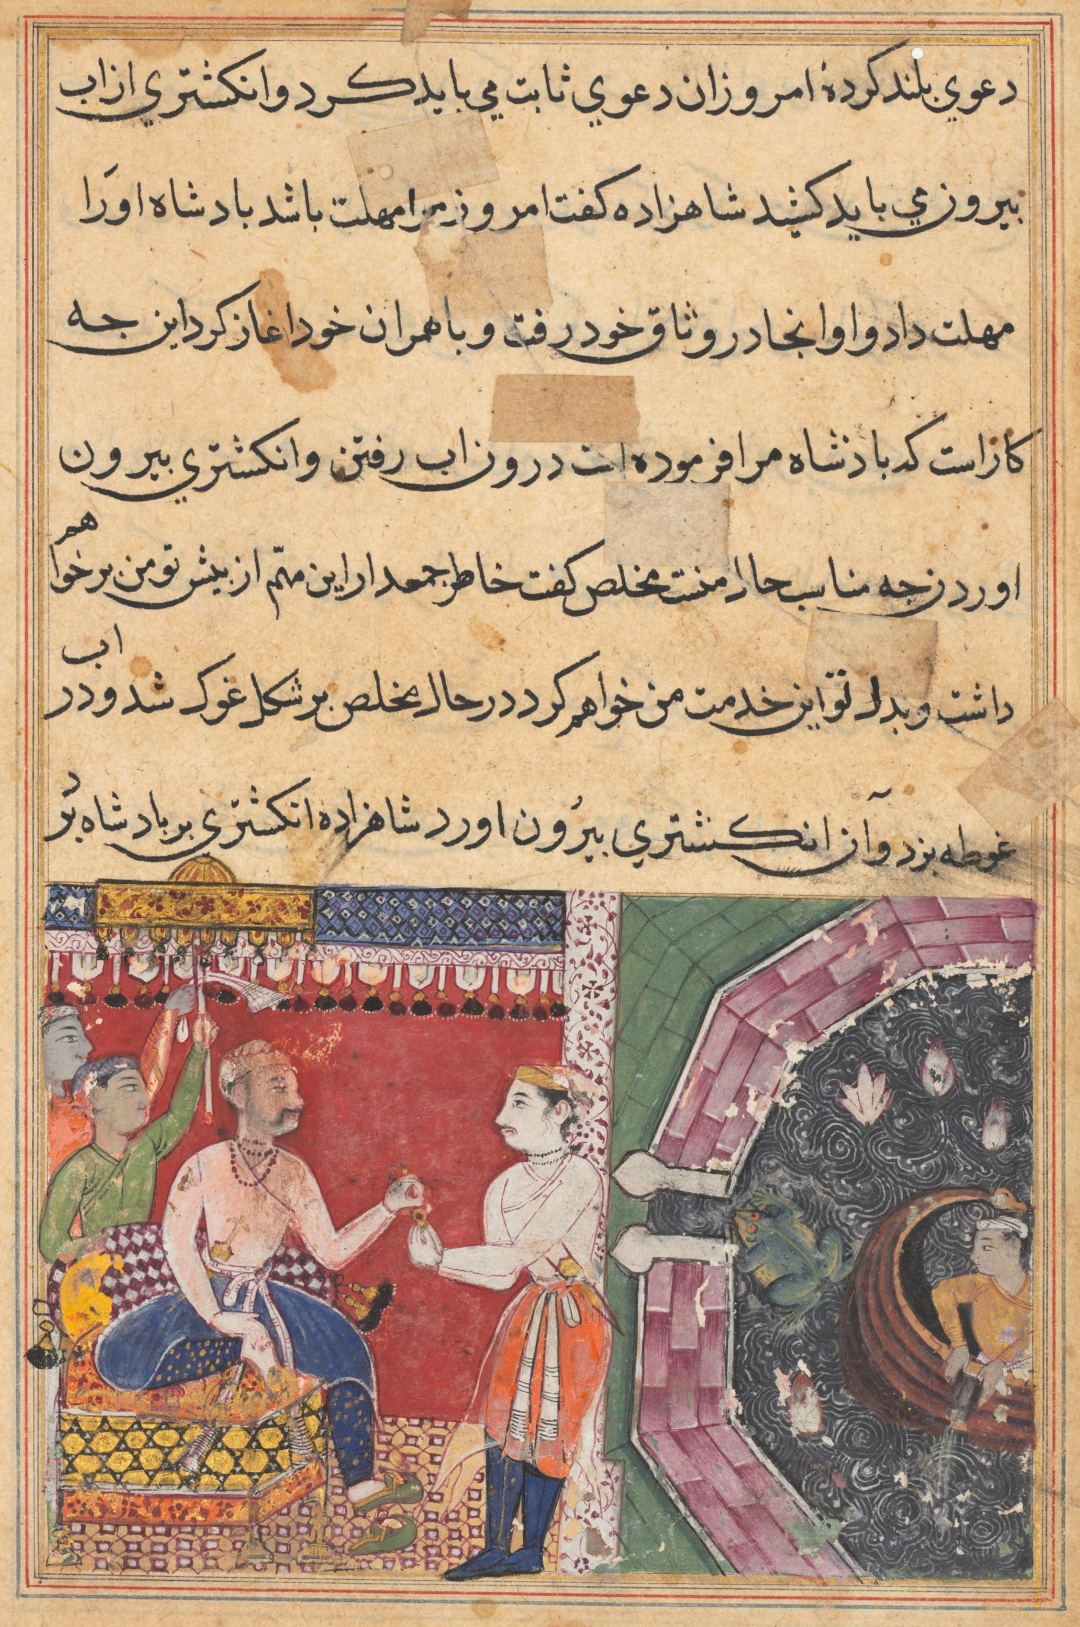 دعوي بلند کردهٔ امروز ان دعوي ثابت مي بايد کرد و انکشتري از اب
بيرون مي بايد کشيد شاهزاده کفت امروز مرا مهلت باشد بادشاه او را
مهلت داد و او انجا در وثاق خود رفت و با همران خود اغاز کرد اين جه
کار است که بادشاه مرا فرموده است درون اب رفتن و انکشتري بيرون
اوردن جه مناسب حال منست مخلص کفت خاطر جمعدار اين مهم از بيش تو من بر خواهم
داشت و بدل تو اين خدمت من خواهم کرد در حال مخلص بر شکل غوک شد و در اب
غوطه بزد و آن انکشتري بيرون اورد شاهزاده انکشتري بر بادشاه برد